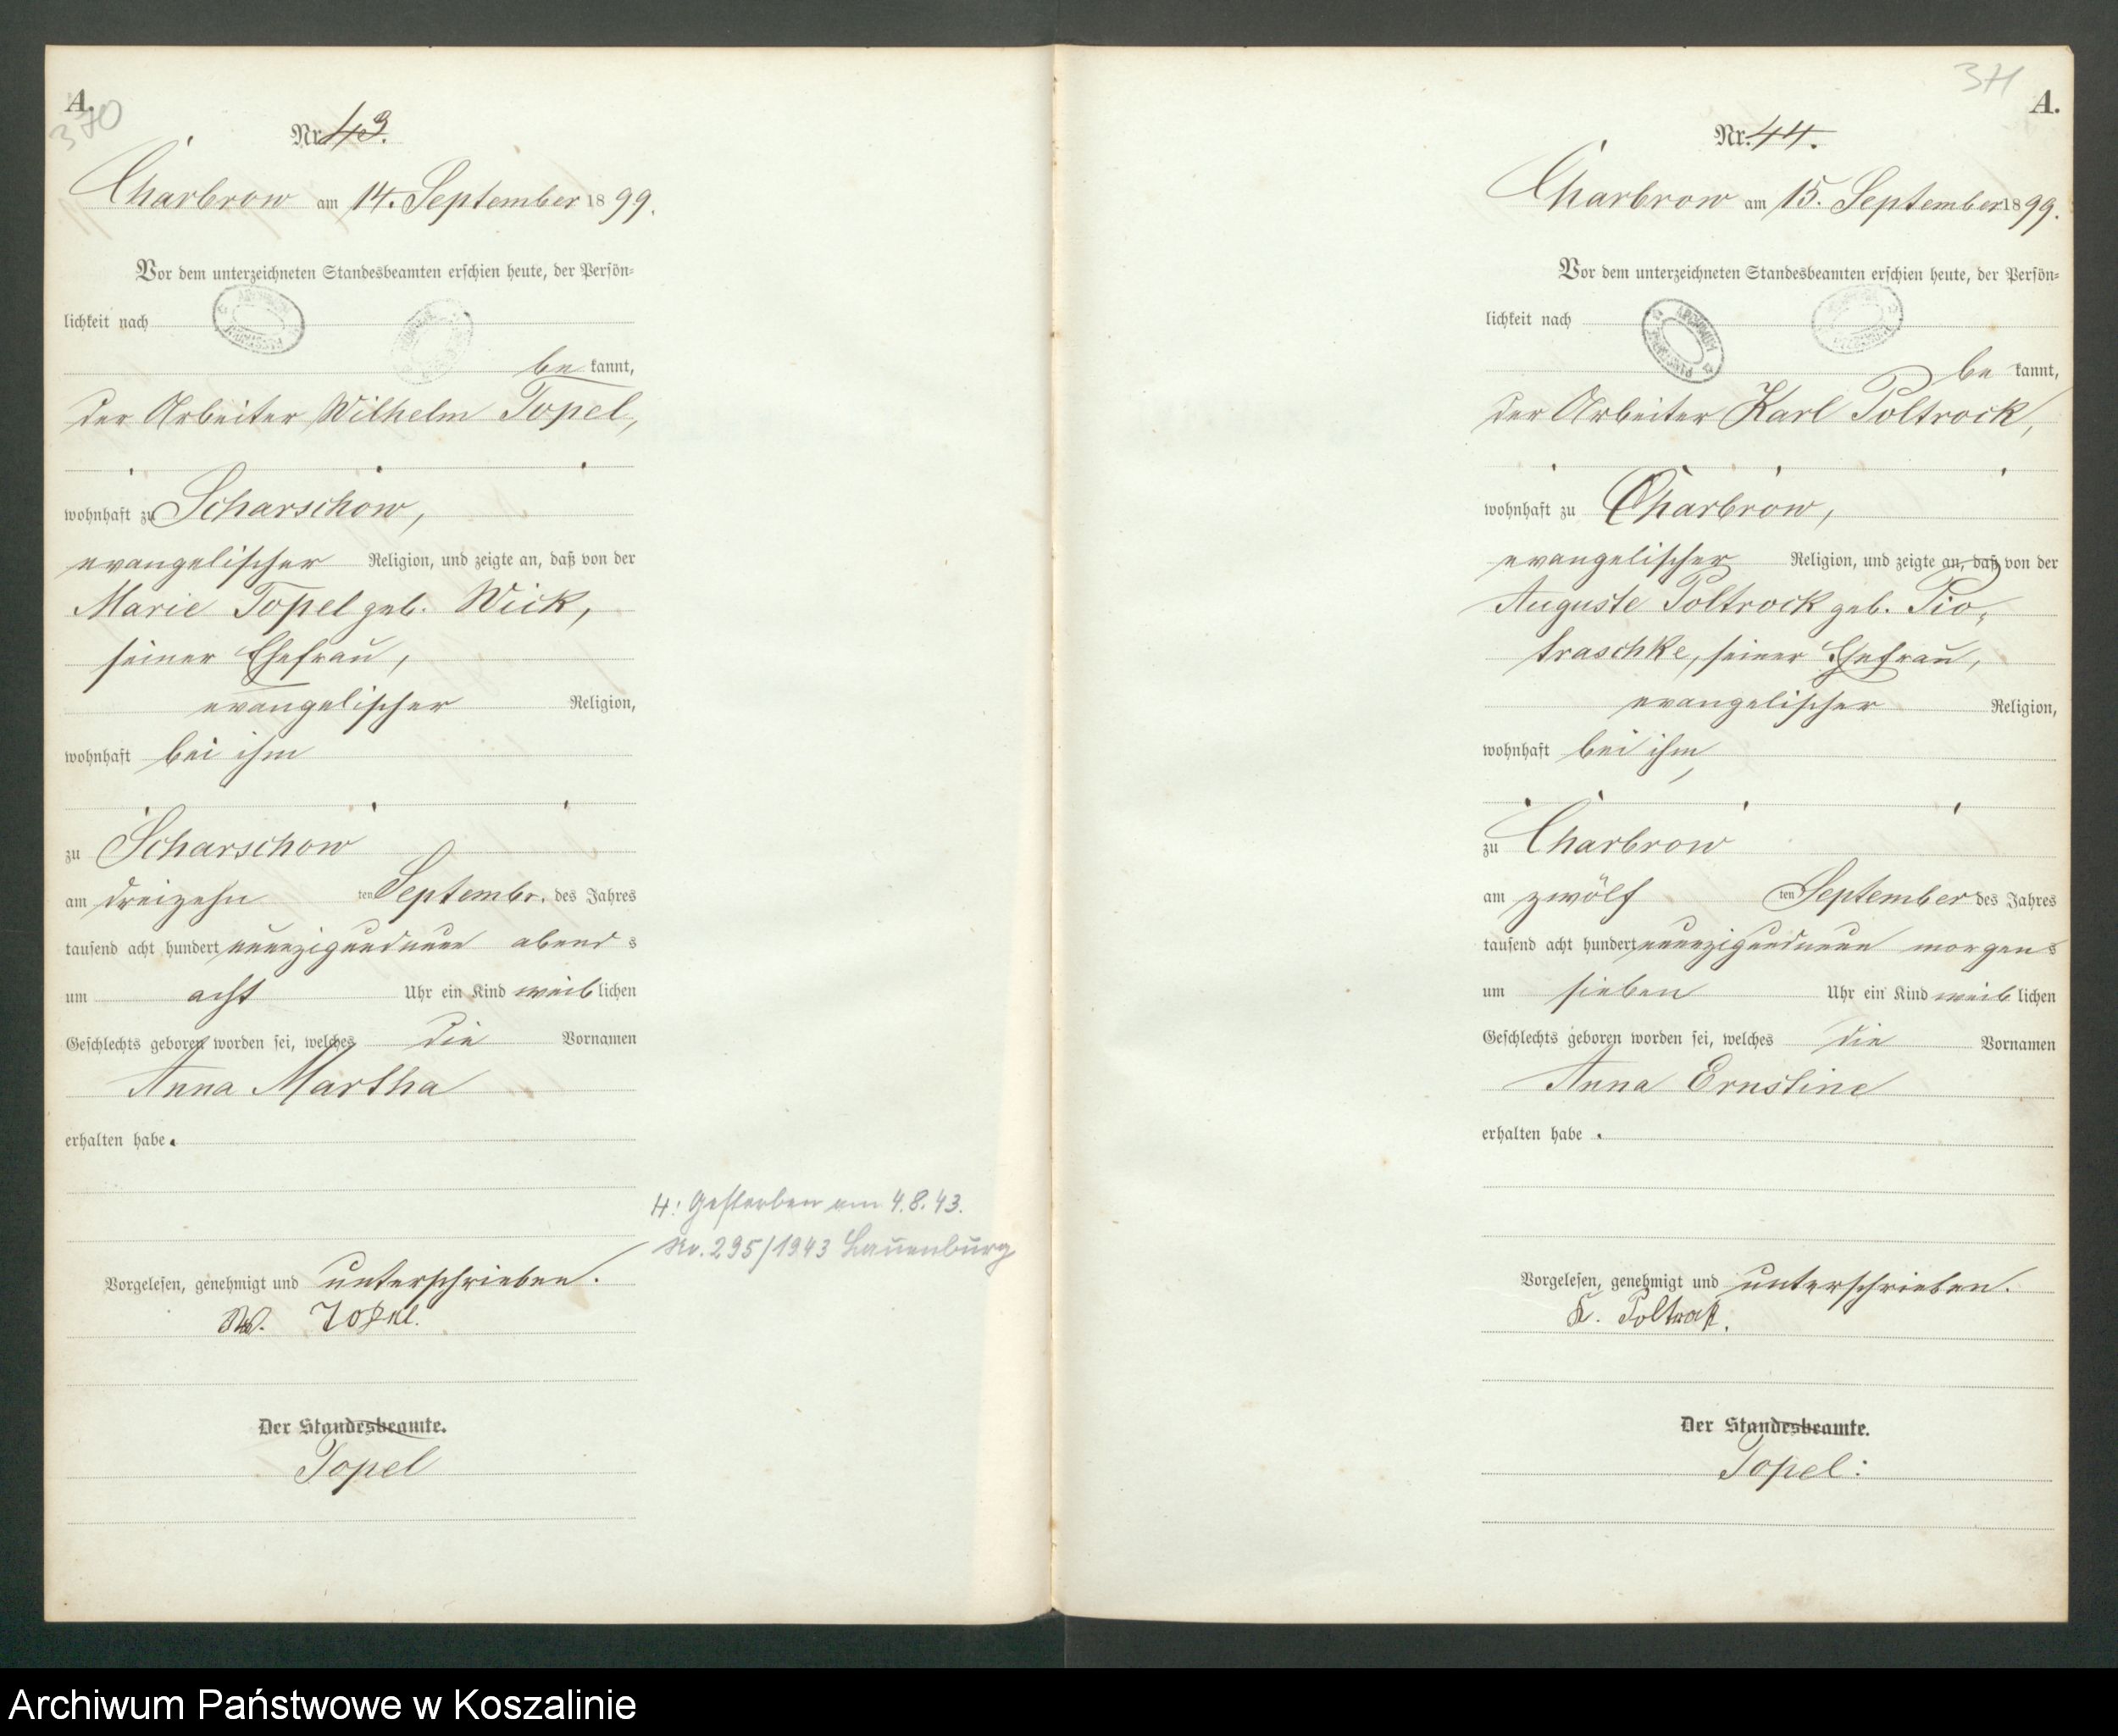 A.
370
Nr. 43.
Charbrow am 14. September 1899.
Vor dem unterzeichneten Standesbeamten erschien heute, der Persön-
lichkeit nach
be kannt,
der Arbeiter Wilhelm Topel,
wohnhaft zu Scharschow,
evangelischer Religion, und zeigte an, daß von der
Marie Topel geb. Wick,
seiner Ehefrau,
evangelischer Religion,
wohnhaft bei ihm
zu Scharschow
am dreizehn ten Septembr. des Jahres
tausend acht hundert neunzigundneun abend s
um acht Uhr ein Kind weib lichen
Geschlechts geboren worden sei, welches die Vornamen
Anna Martha
erhalten habe.
H: Gestorben am 4.8.43.
Nr. 295/1943 Lauenburg
Vorgelesen, genehmigt und unterschrieben.
W. Topel.
Der Standesbeamte.
Topel
371
A.
Nr. 44.
Charbrow am 15. September 1899.
Vor dem unterzeichneten Standesbeamten erschien heute, der Persön-
lichkeit nach
be kannt,
der Arbeiter Karl Poltrock,
wohnhaft zu Charbrow,
evangelischer Religion, und zeigte an, daß von der
Auguste Poltrock geb. Pio-
traschke, seiner Ehefrau,
evangelischer Religion,
wohnhaft bei ihm,
zu Charbrow
am zwölf ten September des Jahres
tausend acht hundert neunzigundneun morgen s
um sieben Uhr ein Kind weib lichen
Geschlechts geboren worden sei, welches die Vornamen
Anna Ernstine
erhalten habe.
Vorgelesen, genehmigt und unterschrieben.
K. Poltrock.
Der Standesbeamte.
Topel:
Archiwum Państwowe w Koszalinie